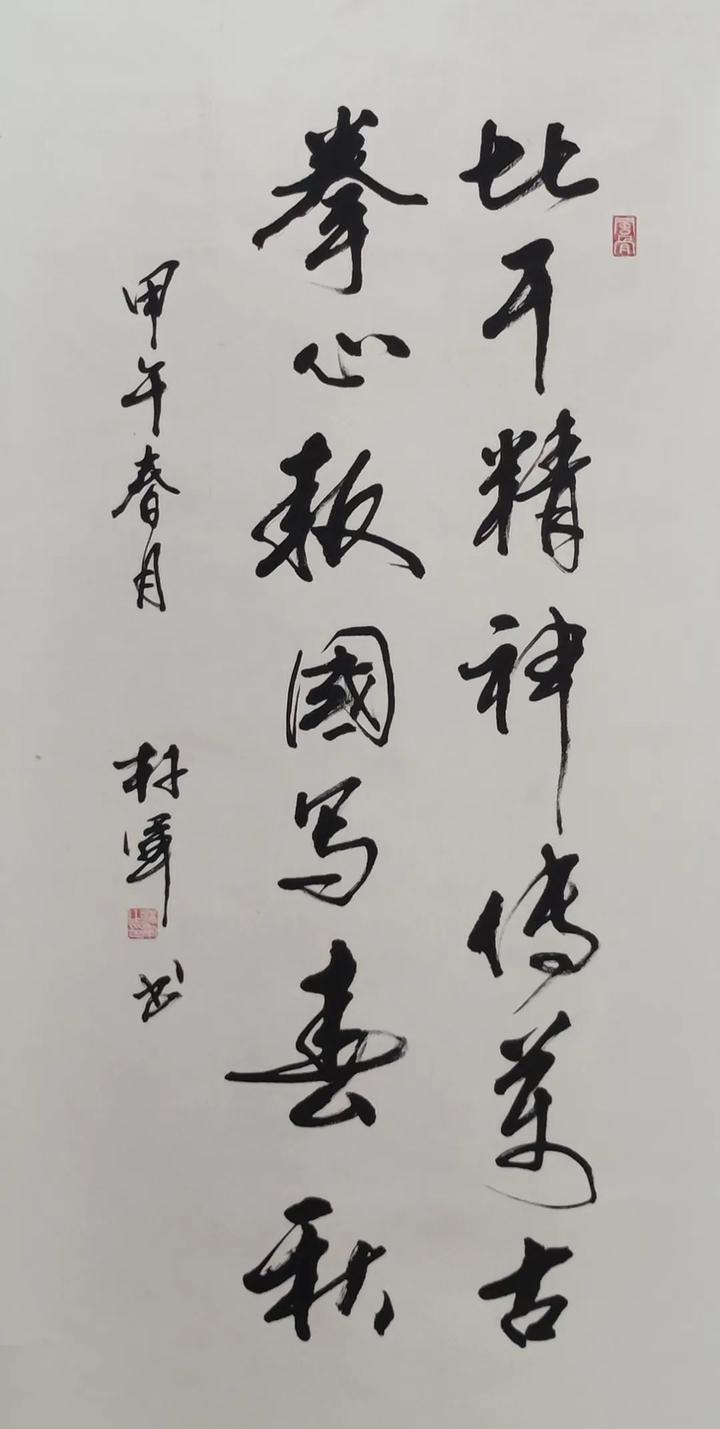 比干精神傳萬古
拳心報國写春秋
甲午春月
林軍 书